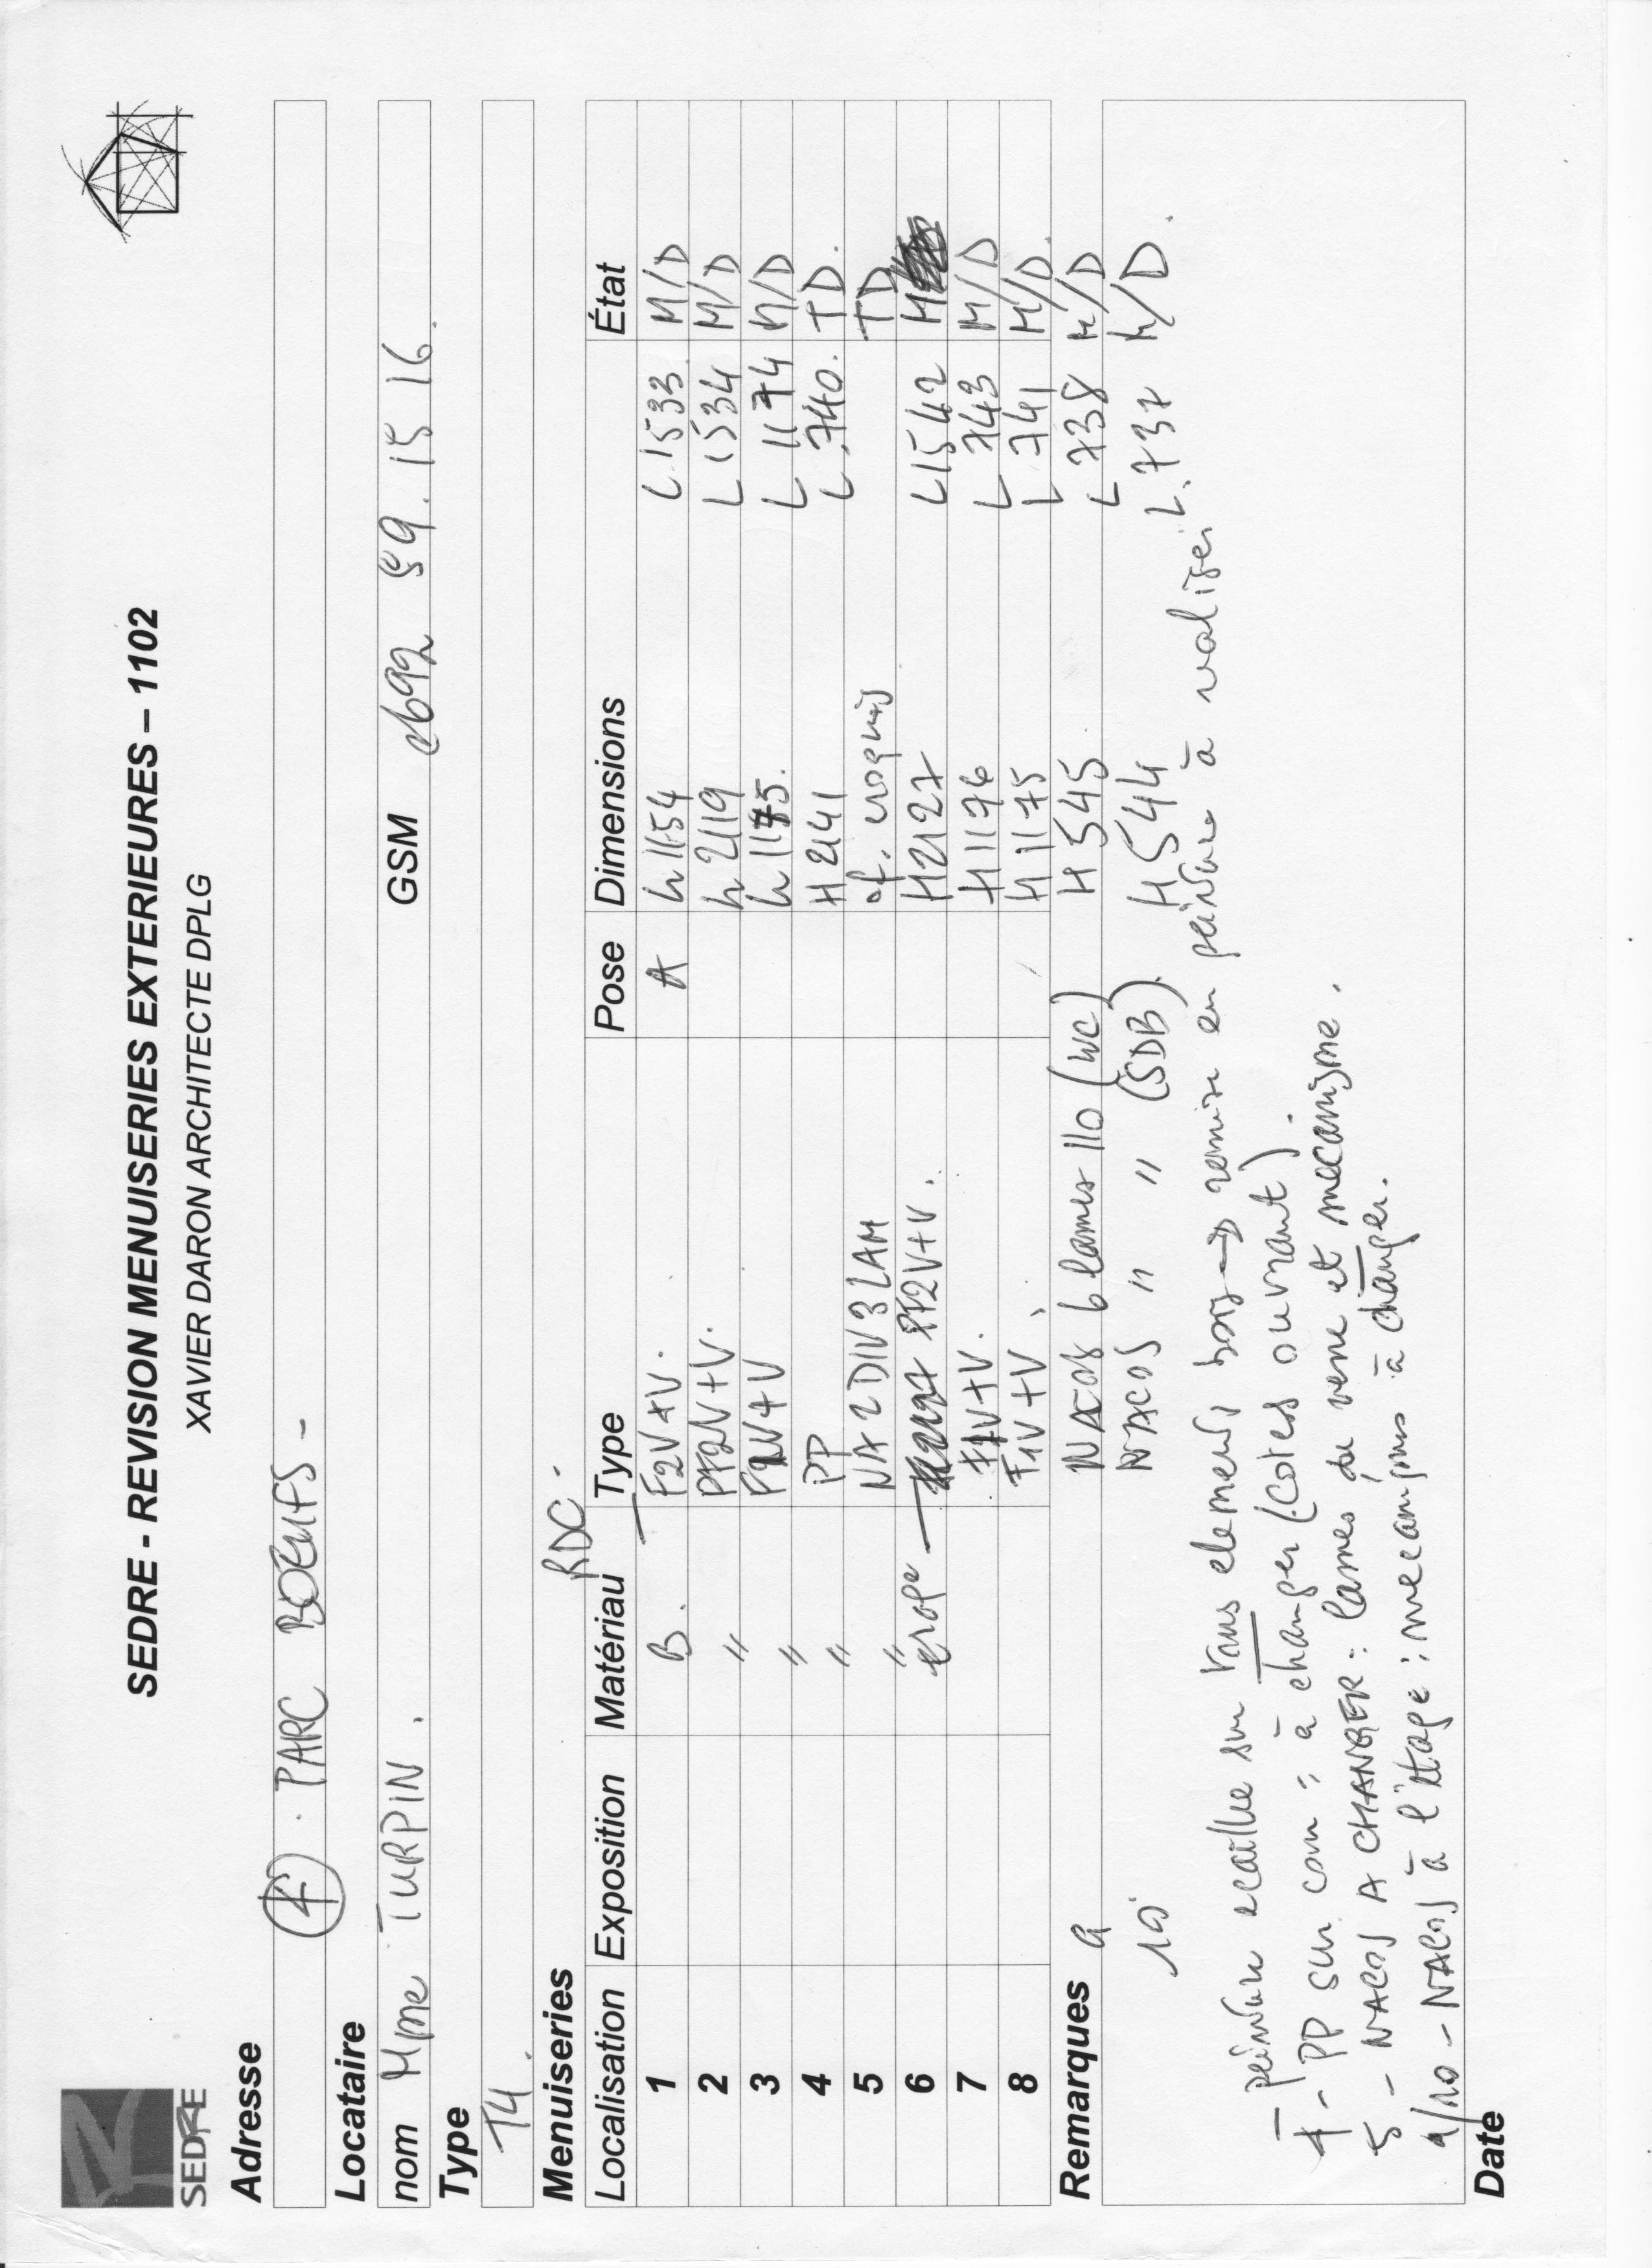 SEDRE
SEDRE - REVISION MENUISERIES EXTERIEURES – 1102
XAVIER DARON ARCHITECTE DPLG
Adresse
PARC BOEUFS -
Locataire
nom Mme TURPIN. GSM 0692 59.15 16.
Type
T4.
Menuiseries RDC.
Localisation Exposition Matériau Type Pose Dimensions État
1 B. F2V+V. A h 1154 L 1533 M/D
2 " PF2V+V. h 2119 L 1534 M/D
3 " F2V+V h 1175. L 1174 M/D
4 " PP H 2141 L 740. TD.
5 " NA 2 DIV 3 LAM cf. croquis TD
6 PF2V+V. H2127 L1542 M
7 F1V+V. H1176 L 743 M/D
8 F1V+V. H1175 L 741 M/D.
Remarques 9 NACOS 6 lames 110 (WC) H 545 L 738 M/D
10 NACOS " " (SDB). H 544 L.737 M/D.
- peinture ecaillee sur tous elements bois → remise en peinture à realiser
4 - PP sur cour : à changer (cotes ouvrant).
5 - NACOS A CHANGER : lames de verre et mecanisme.
9/10 - NACOS à l'étage : mecanismes à changer.
Date